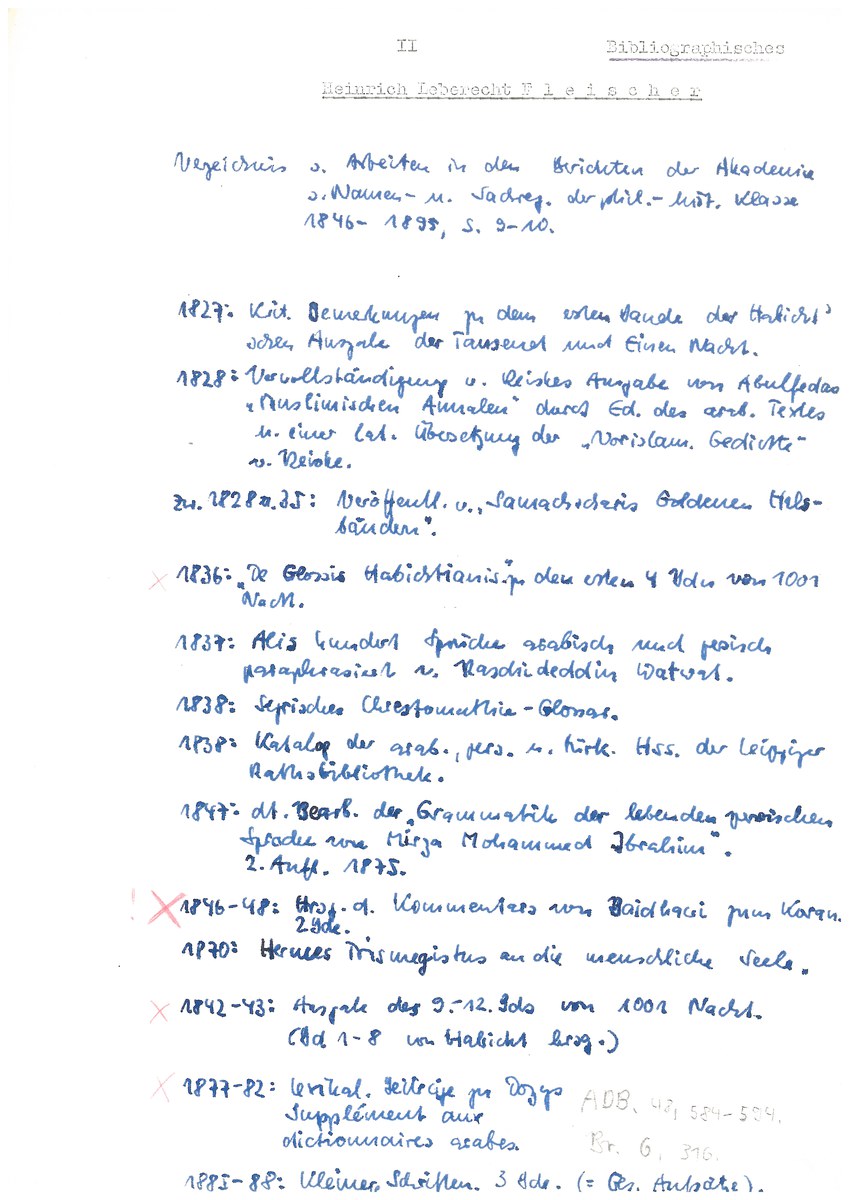 II Bibliographisches
Heinrich Leberecht F l e i s c h e r
Verzeichnis s. Arbeiten in den Berichten der Akademie
s. Namen- u. Sachreg. der phil.-hist. Klasse
1846- 1895, S. 9-10.
1827: Krit. Bemerkungen zu dem ersten Bande der Habicht'
schen Ausgabe der Tausend und Einen Nacht.
1828: Vervollständigung v. Reiskes Ausgabe von Abulfedas
„Muslimischen Annalen" durch Ed. des arab. Textes
u. einer lat. Übersetzung der „Vorislam. Gedichte"
v. Reiske.
zw. 1828 u. 35: Veröffentl. v. „Samachscharis Goldenen Hals-
bändern".
1836: „De Glossis Habichtianis" zu den ersten 4 Bdn von 1001
Nacht.
1837: Alis hundert Sprüche arabisch und persisch
paraphrasiert v. Raschideddin Watwat.
1838: Syrisches Chrestomathie-Glossar.
1838: Katalog der arab., pers. u. türk. Hss. der Leipziger
Rathsbibliothek.
1847: dt. Bearb. der „Grammatik der lebenden persischen
Sprache von Mirza Mohammed Ibrahim".
2. Aufl. 1875.
! 1846-48: Hrsg. d. Kommentars von Baidhawi zum Koran.
2 Bde.
1870: Hermes Trismegistus an die menschliche Seele.
1842-43: Ausgabe des 9.-12. Bds von 1001 Nacht.
(Bd 1-8 von Habicht hrsg.)
1877-82: lexikal. Beiträge zu Dozys
Supplément aux
dictionnaires arabes.
ADB. 48, 584-594.
Br. G. 316.
1885-88: Kleinere Schriften. 3 Bde. (= Ges. Aufsätze).